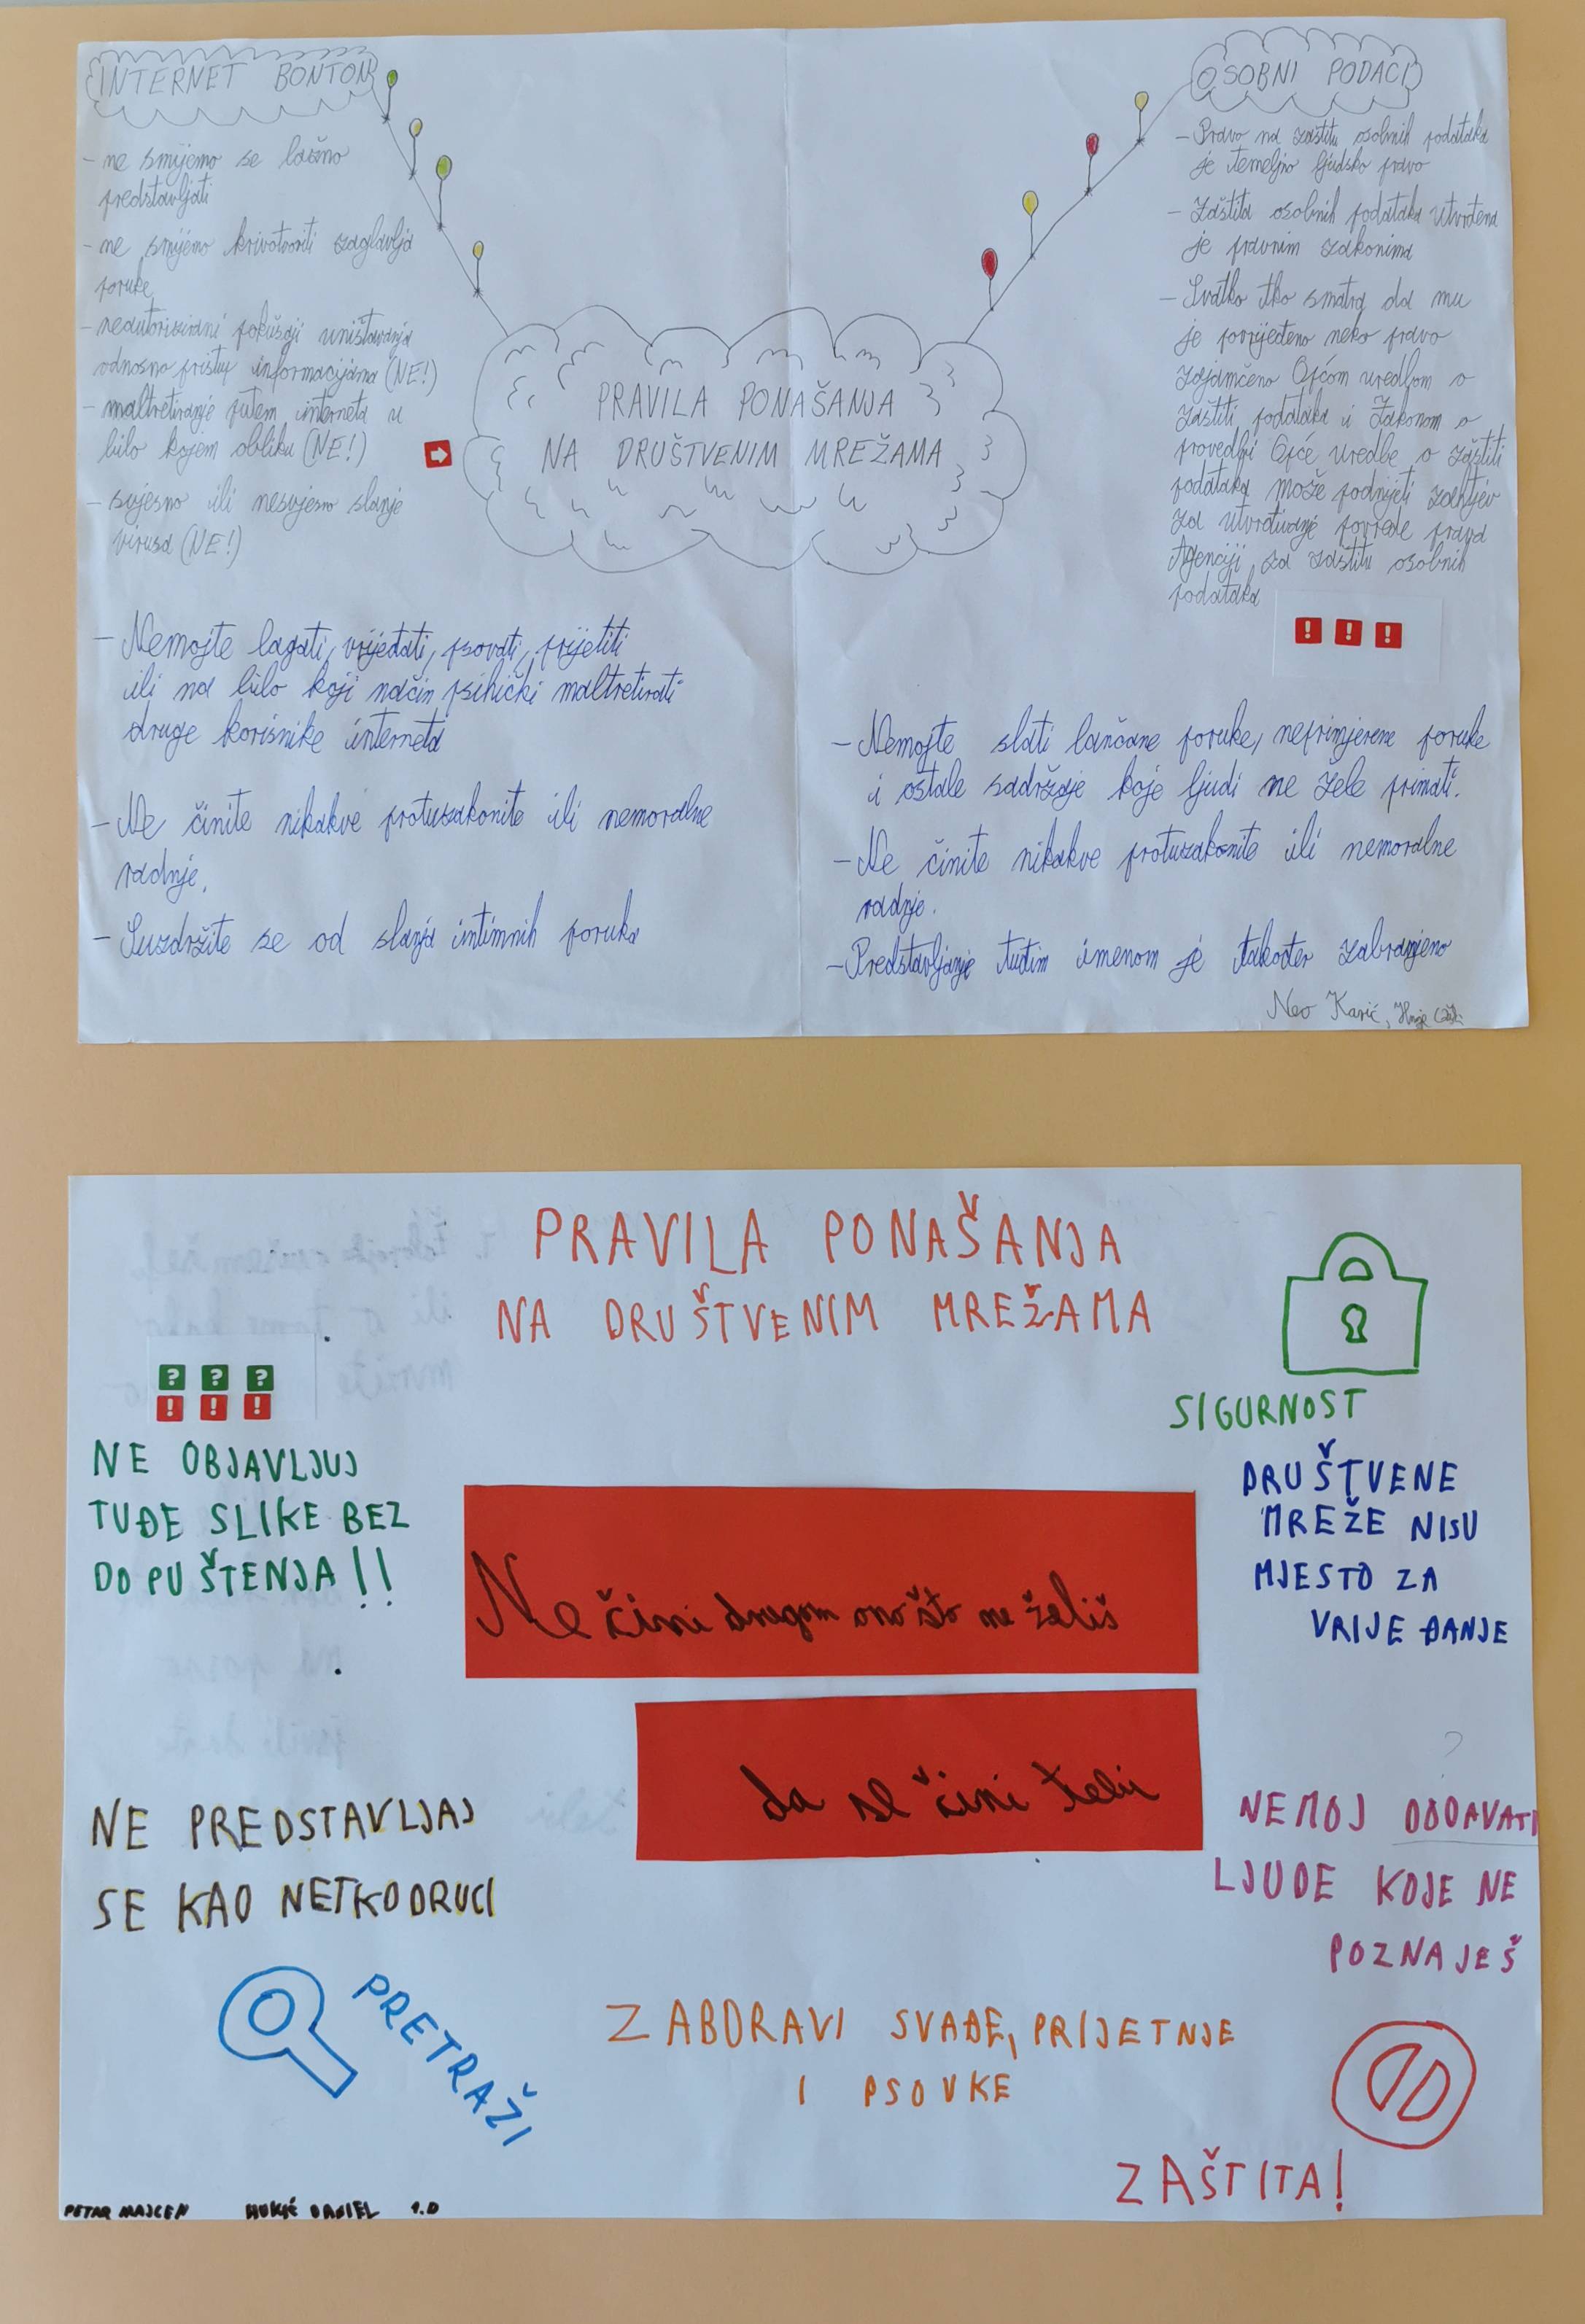 INTERNET BONTON
- ne smijemo se lažno
predstavljati
- ne smijemo krivotvoriti zaglavlja
poruke
- neautorizirani pokušaji uništavanja
odnosno pristup informacijama (NE!)
- maltretiranje putem interneta u
bilo kojem obliku (NE!)
- svjesno ili nesvjesno slanje
virusa (NE!)
PRAVILA PONAŠANJA
NA DRUŠTVENIM MREŽAMA
OSOBNI PODACI
- Pravo na zaštitu osobnih podataka
je temeljno ljudsko pravo
- Zaštita osobnih podataka utvrđena
je pravnim zakonima
- Svatko tko smatra da mu
je povrijeđeno neko pravo
zajamčeno Općom uredbom o
zaštiti podataka i Zakonom o
provedbi Opće uredbe o zaštiti
podataka može podnijeti zahtjev
za utvrđivanje povrede prava
Agenciji za zaštitu osobnih
podataka
! ! !
- Nemojte lagati, vrijeđati, psovati, prijetiti
ili na bilo koji način psihički maltretirati
druge korisnike interneta
- Ne činite nikakve protuzakonite ili nemoralne
radnje.
- Suzdržite se od slanja intimnih poruka
- Nemojte slati lančane poruke, neprimjerene poruke
i ostale sadržaje koje ljudi ne žele primati.
- Ne činite nikakve protuzakonite ili nemoralne
radnje.
- Predstavljanje tuđim imenom je također zabranjeno
Neo Karić,
PRAVILA PONAŠANJA
NA DRUŠTVENIM MREŽAMA
? ? ?
! ! !
NE OBJAVLJUJ
TUĐE SLIKE BEZ
DOPUŠTENJA!!
SIGURNOST
DRUŠTVENE
MREŽE NISU
MJESTO ZA
VRIJEĐANJE
Ne čini drugom ono što ne želiš
da se čini tebi
NE PREDSTAVLJAJ
SE KAO NETKO DRUGI
?
NEMOJ DODAVATI
LJUDE KOJE NE
POZNAJEŠ
PRETRAŽI
ZABORAVI SVAĐE, PRIJETNJE
I PSOVKE
ZAŠTITA!
PETAR MAJCEN DANIEL 1.D